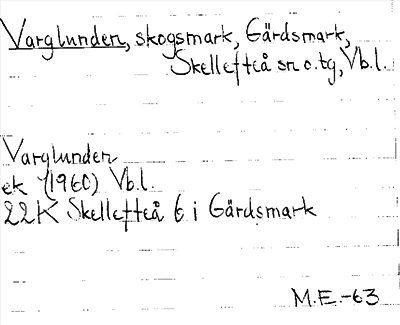 Varglunden, skogsmark, Gärdsmark,
Skellefteå sn o. tg, Vb.l.
Varglunden
ek (1960) Vb.l.
22K Skellefteå 6 i Gärdsmark
M.E.-63